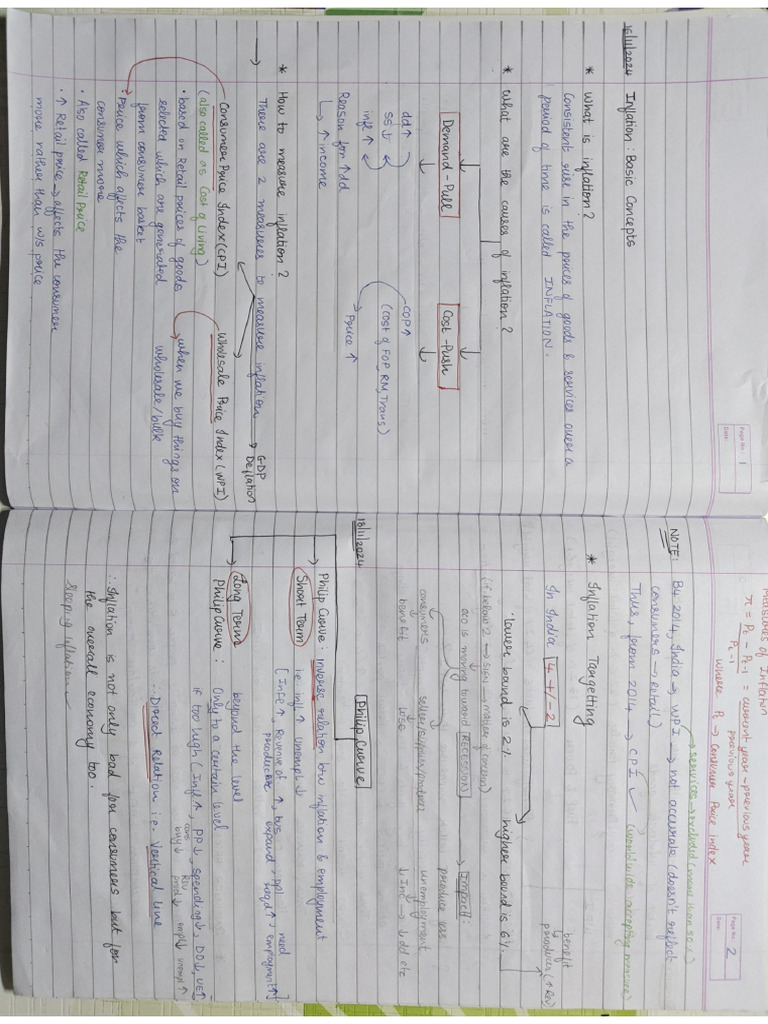 Page No.: 1
Date:
15/11/2024 Inflation: Basic Concepts
* What is inflation?
Consistent rise in the prices of goods & services over a
period of time is called INFLATION.
* What are the causes of inflation?
Demand-Pull Cost-Push
dd↑
ss↓
infl↑
COP↑
(cost of FOP, RM, Trans)
Price ↑
Reason for ↑dd
↳ ↑ income
* How to measure inflation?
→ There are 2 measures to measure inflation → GDP Deflation
Consumer Price Index (CPI) Wholesale Price Index (WPI)
(also called as Cost of Living)
• based on Retail prices of goods
selected which are generated
from consumer basket
when we buy things on
wholesale/bulk
• Price which affects the
consumer more
• Also called Retail Price
• ↑ Retail price → affects the consumer
more rather than w/s price
Page No.: 2
Date:
Measures of Inflation
π = Pt - Pt-1 / Pt-1 = current year - previous year / previous year
where Pt → Consumer Price index
→ services → excluded (more than 50%)
NOTE: B4 2014, India → WPI → not accurate (doesn't reflect
consumers → retail)
Thus, from 2014 → CPI ✓ (worldwide accepting measure)
* Inflation Targetting
In India 4 +/- 2
benefit
producer (↑ Rev)
• lower bound is 2% higher bound is 6%
(if below 2 → sign → matter of concern)
eco is moving toward RECESSION → Impact:
consumers seller/supplier/producer produce less
benefit lose unemployment
↓ Inc → ↓ dd etc
18/11/2024 Philip Curve
Philip Curve: inverse relation btw inflation & employment
Short Term i.e. infl ↑ Unempl ↓
[Infl ↑, Revenue of producer ↑, bus expand, ppl need reqd ↑, employment ↑]
Long Term
Philip Curve:
beyond the level
Only to a certain level
if too high (Infl ↑, PP ↓, spending ↓, DD ↓, UE ↑)
cons buy ↓ Rev prod ↓ empl ↓ unempl ↑
∴ Direct Relation i.e. Vertical line
∴ Inflation is not only bad for consumers but for
the overall economy too.
Creeping Inflation